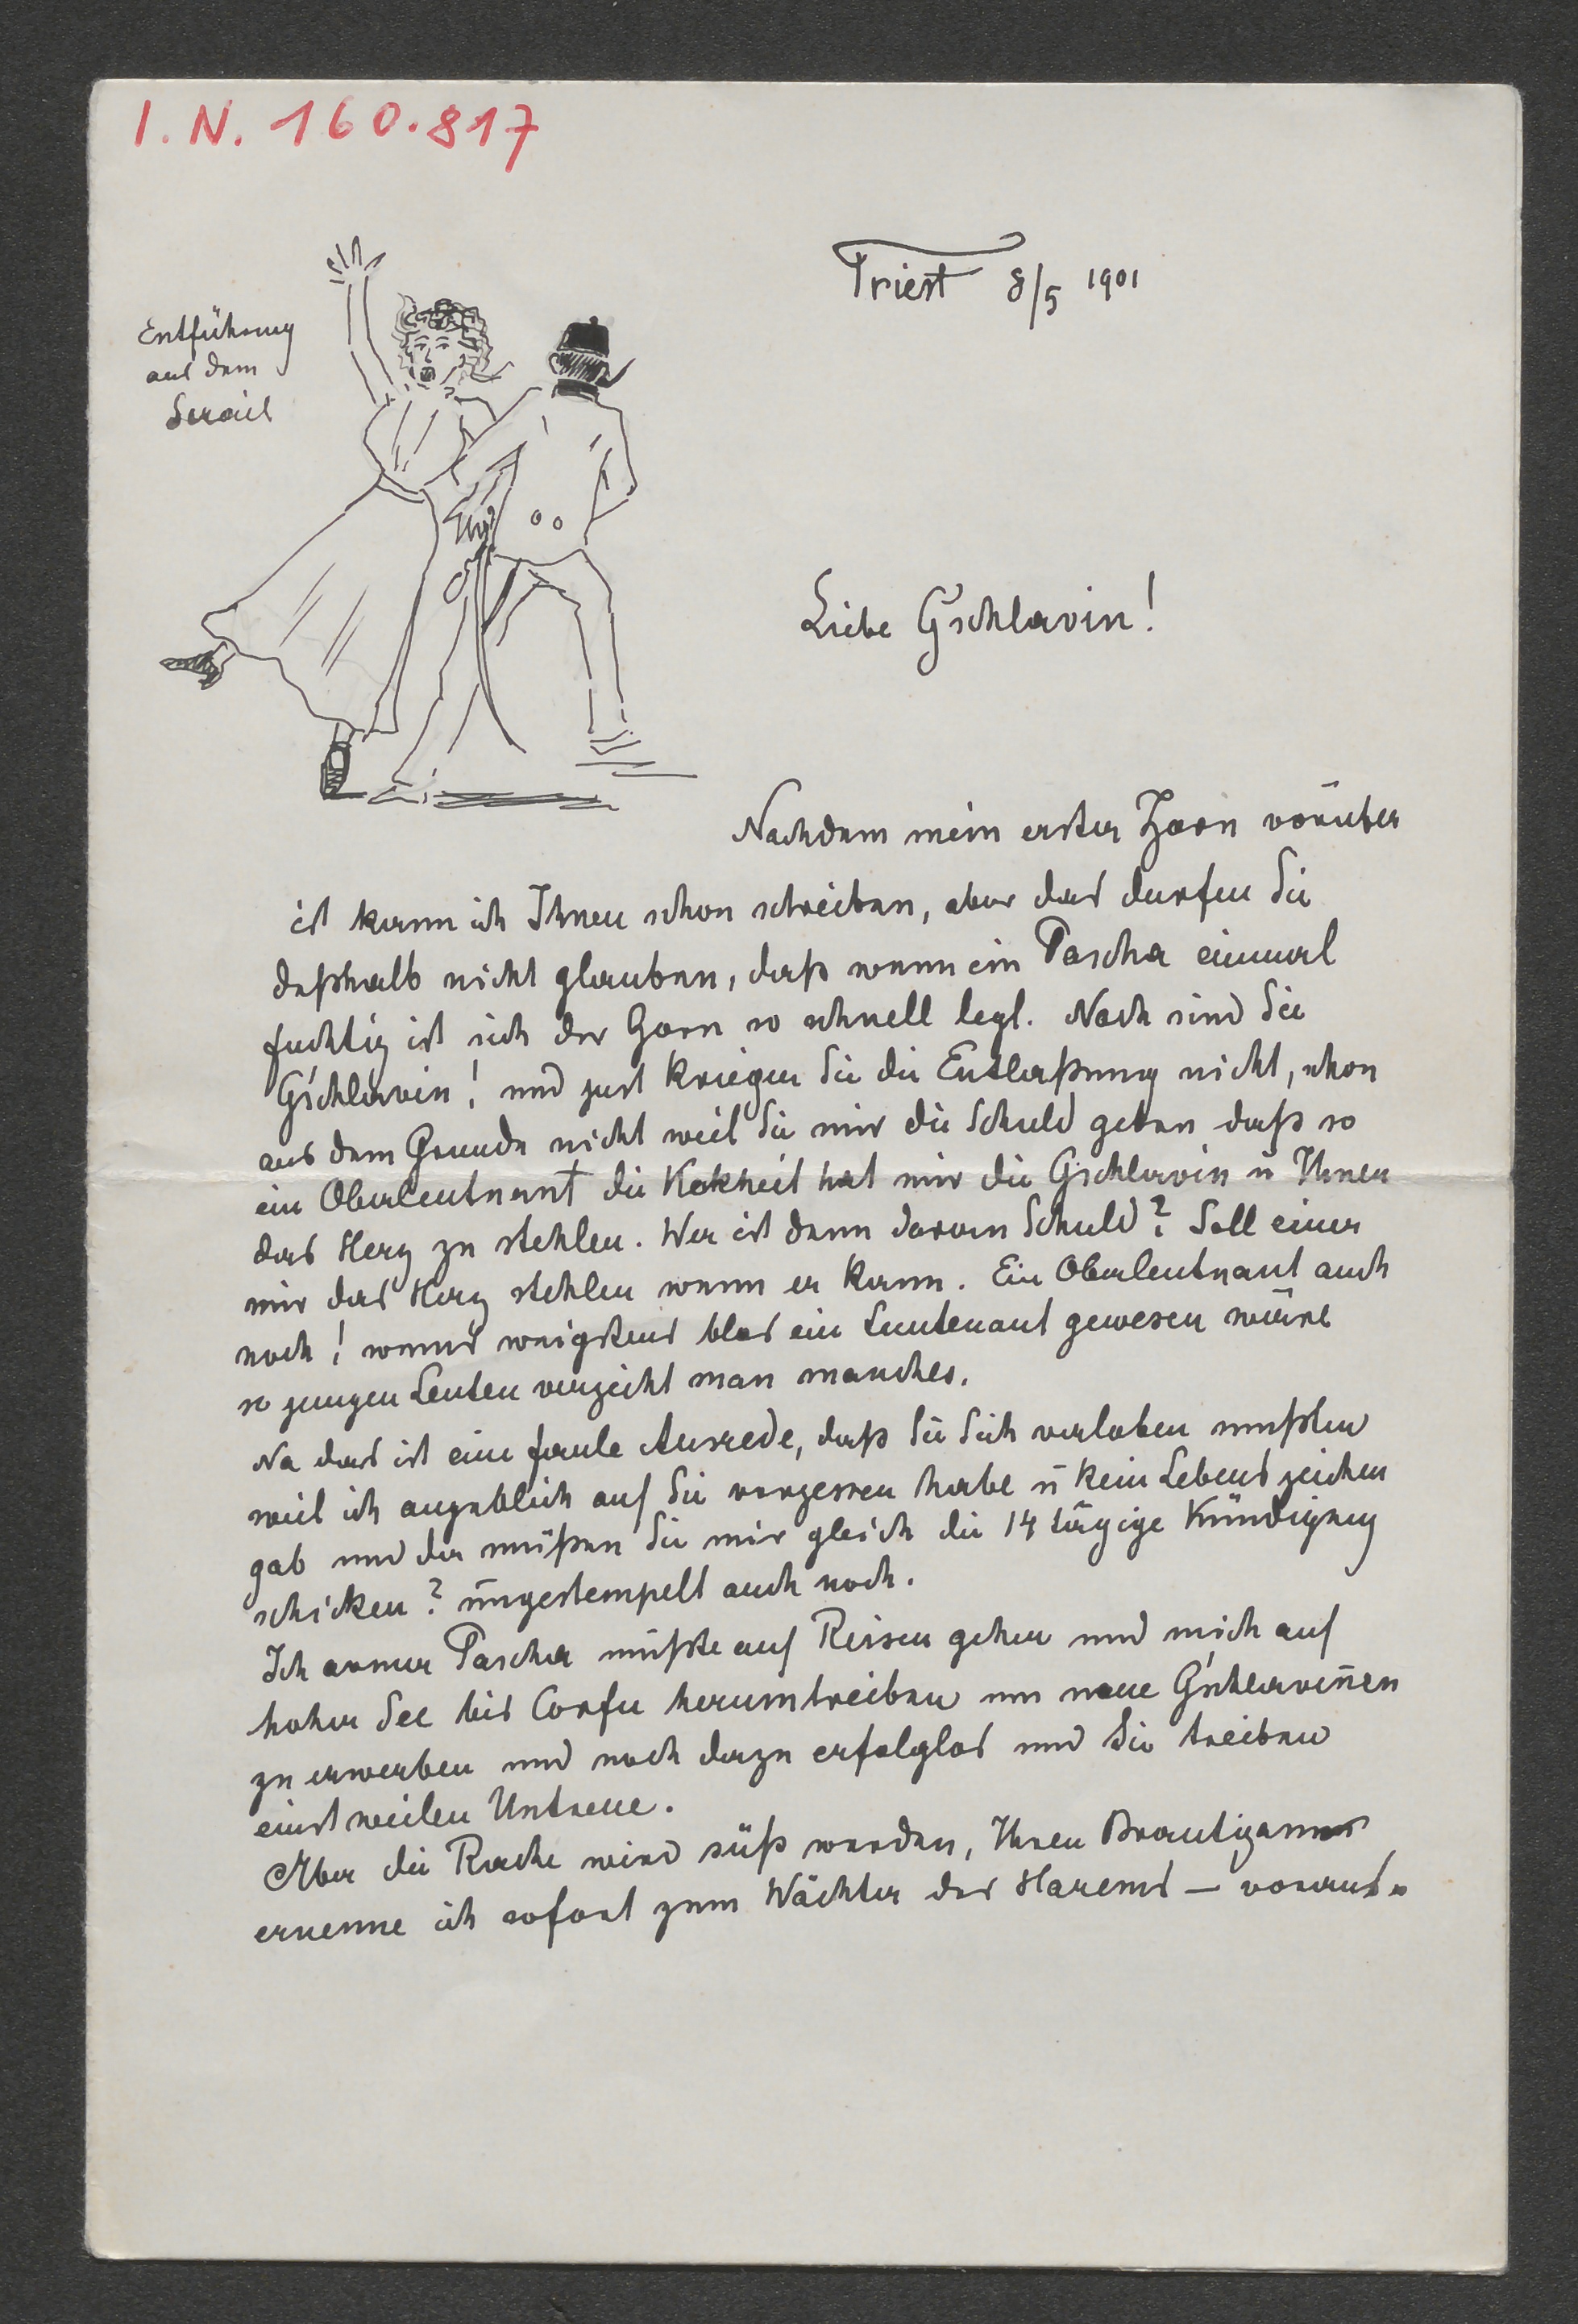 I. N. 160.817
Triest 8/5 1901
Entführung
aus dem
Serail
Liebe G'schlavin!
Nachdem mein erster Zorn vorüber
ist kann ich Ihnen schon schreiben, aber das durfen Sie
deßhalb nicht glauben, daß wenn ein Pascha einmal
fuchtig ist sich der Zorn so schnell legt. Noch sind Sie
G'schlavin! und just kriegen Sie die Entlaßung nicht, schon
aus dem Grunde nicht weil Sie mir die Schuld geben daß so
ein Oberleutnant die Kekheit hat mir die Gschlavin u̅ Ihnen
das Herz zu stehlen. Wer ist denn daran Schuld? Soll einer
mir das Herz stehlen wenn er kann. Ein Oberleutnant auch
noch! wenns wenigstens blos ein Leutenant gewesen wäre
so jungen Leuten verzeiht man manches.
Na das ist eine faule Ausrede, daß Sie Sich verloben mußten
weil ich angeblich auf Sie vergessen habe u̅ kein Lebenszeichen
gab und da müßen Sie mir gleich die 14 tägige Kündigung
schicken? ungestempelt auch noch.
Ich armer Pascha mußte auf Reisen gehen und mich auf
hoher See bis Corfu herumtreiben um neue G'schlavin̅en
zu erwerben und noch dazu erfolglos und Sie treiben
einstweilen Untreue.
Aber die Rache wird süß werden, Ihren Brautigam
ernenne ich sofort zum Wächter des Harems – voraus-